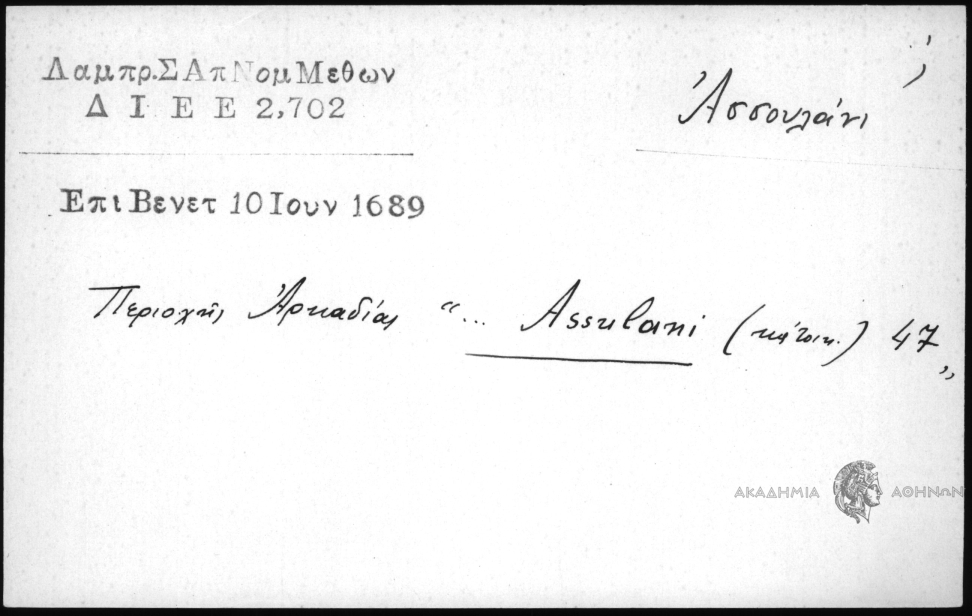 Λαμπρ.ΣΑπΝομΜεθων
Δ Ι Ε Ε 2,702
Ἀσσουλάνι
ΕπιΒενετ 10 Ιουν 1689
Περιοχῆς Ἀρκαδίας “... Assulani (κάτοικ.) 47„
ΑΚΑΔΗΜΙΑ ΑΘΗΝΩΝ